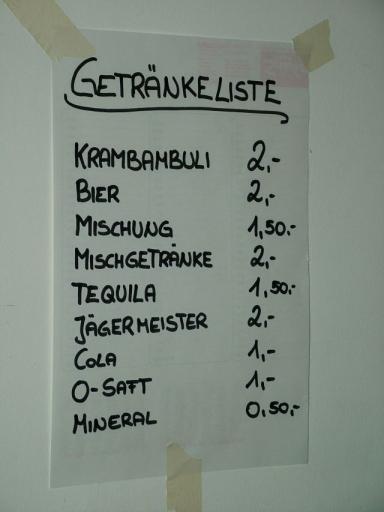 GETRÄNKELISTE
KRAMBAMBULI 2,-
BIER 2,-
MISCHUNG 1,50.-
MISCHGETRÄNKE 2,-
TEQUILA 1,50.-
JÄGERMEISTER 2,-
COLA 1,-
O-SAFT 1,-
MINERAL 0,50,-